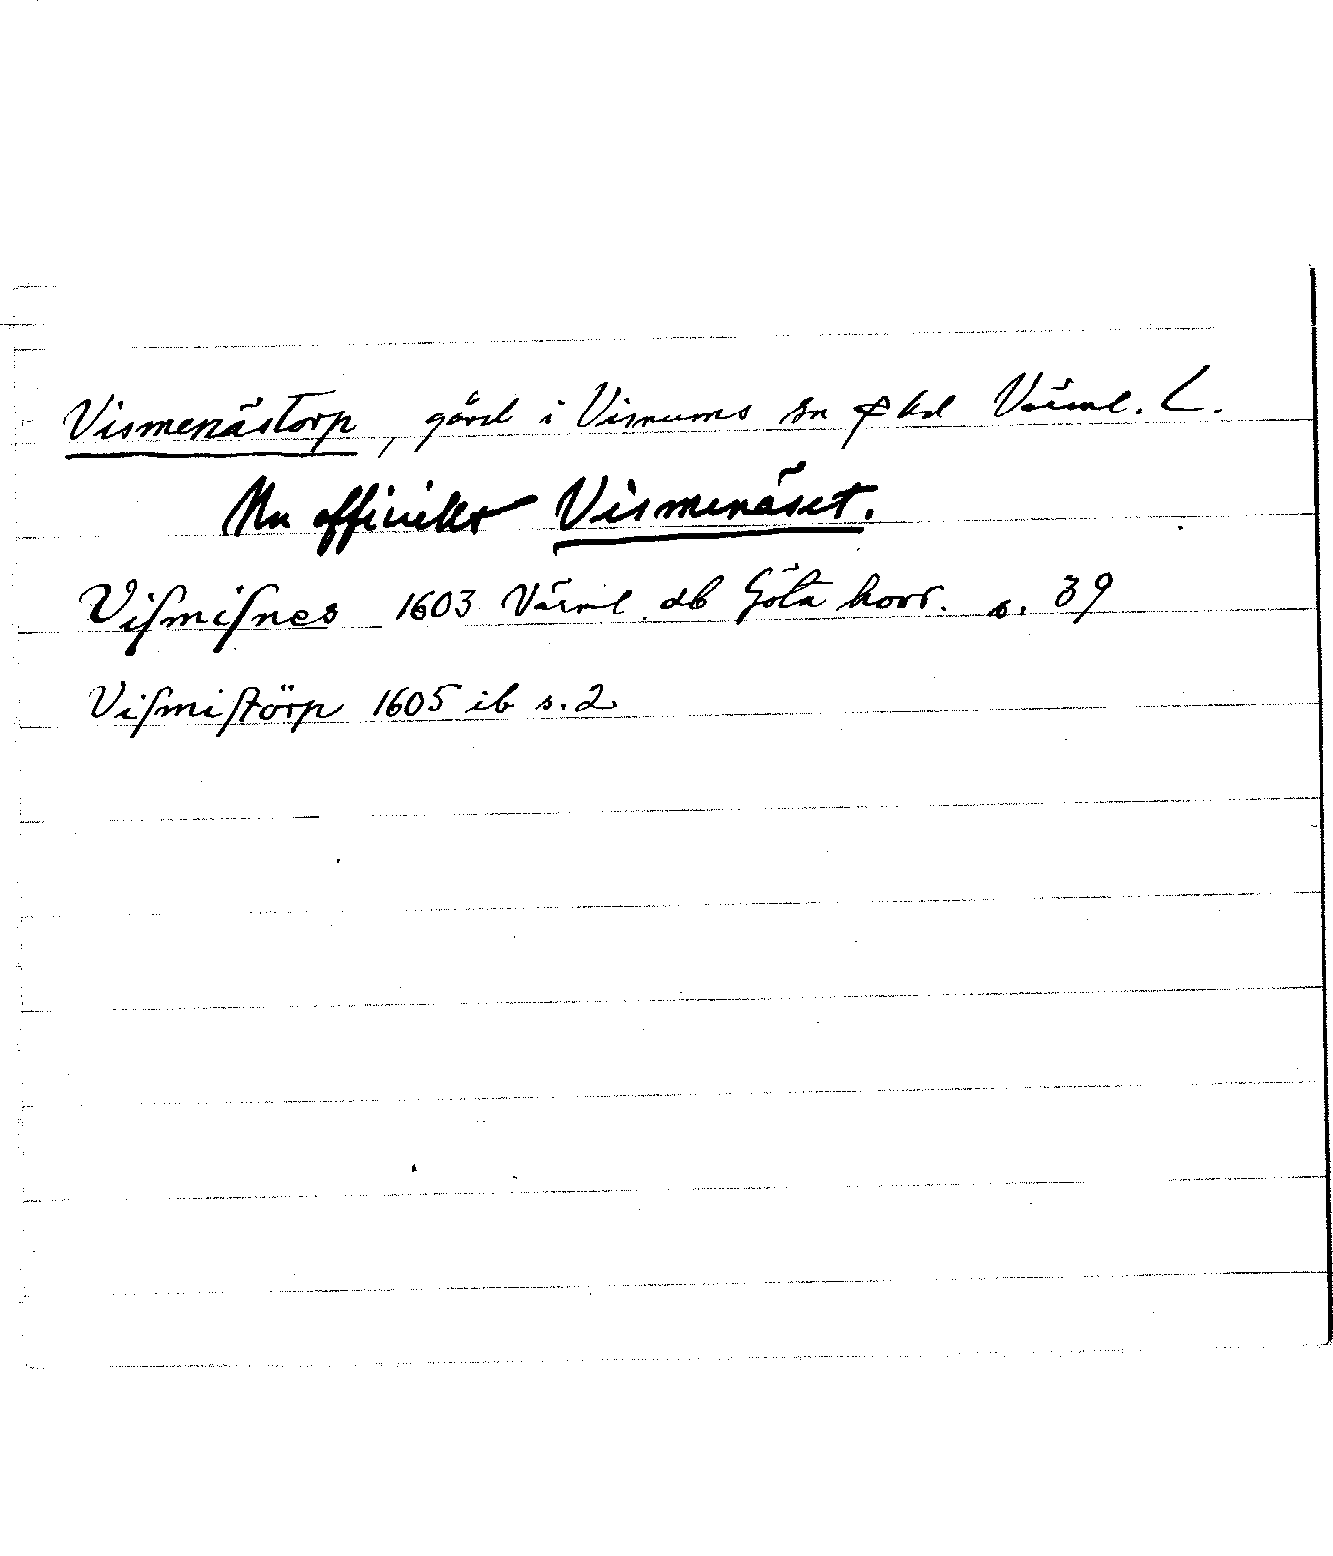 Vismenästorp, gård i Visnums sn o hd Värml. L.
Nu officiellt Vismenäset.
Viſmiſnes 1603 Värml db Göta hovr. s. 39
Viſmiſtörp 1605 ib s. 2